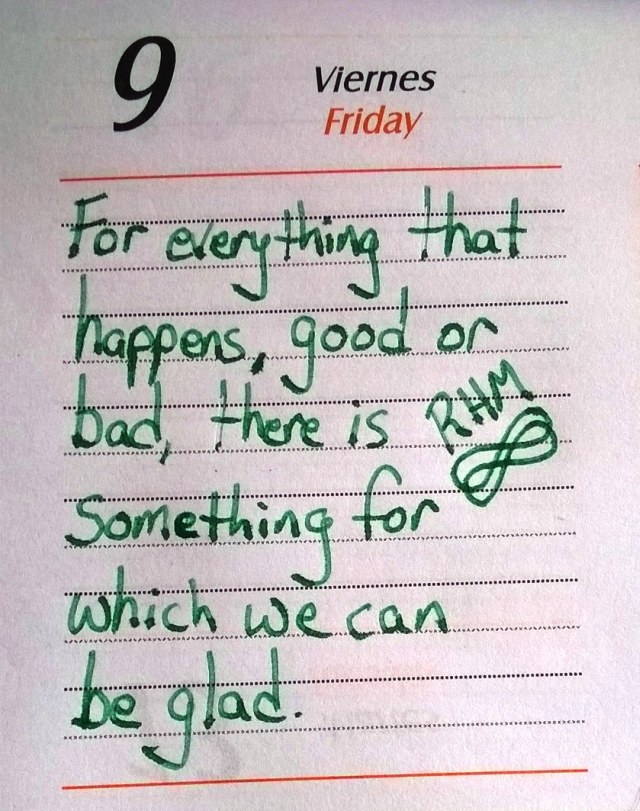 9
Viernes
Friday
For everything that
happens, good or
bad, there is
RHM
Something for
which we can
be glad.